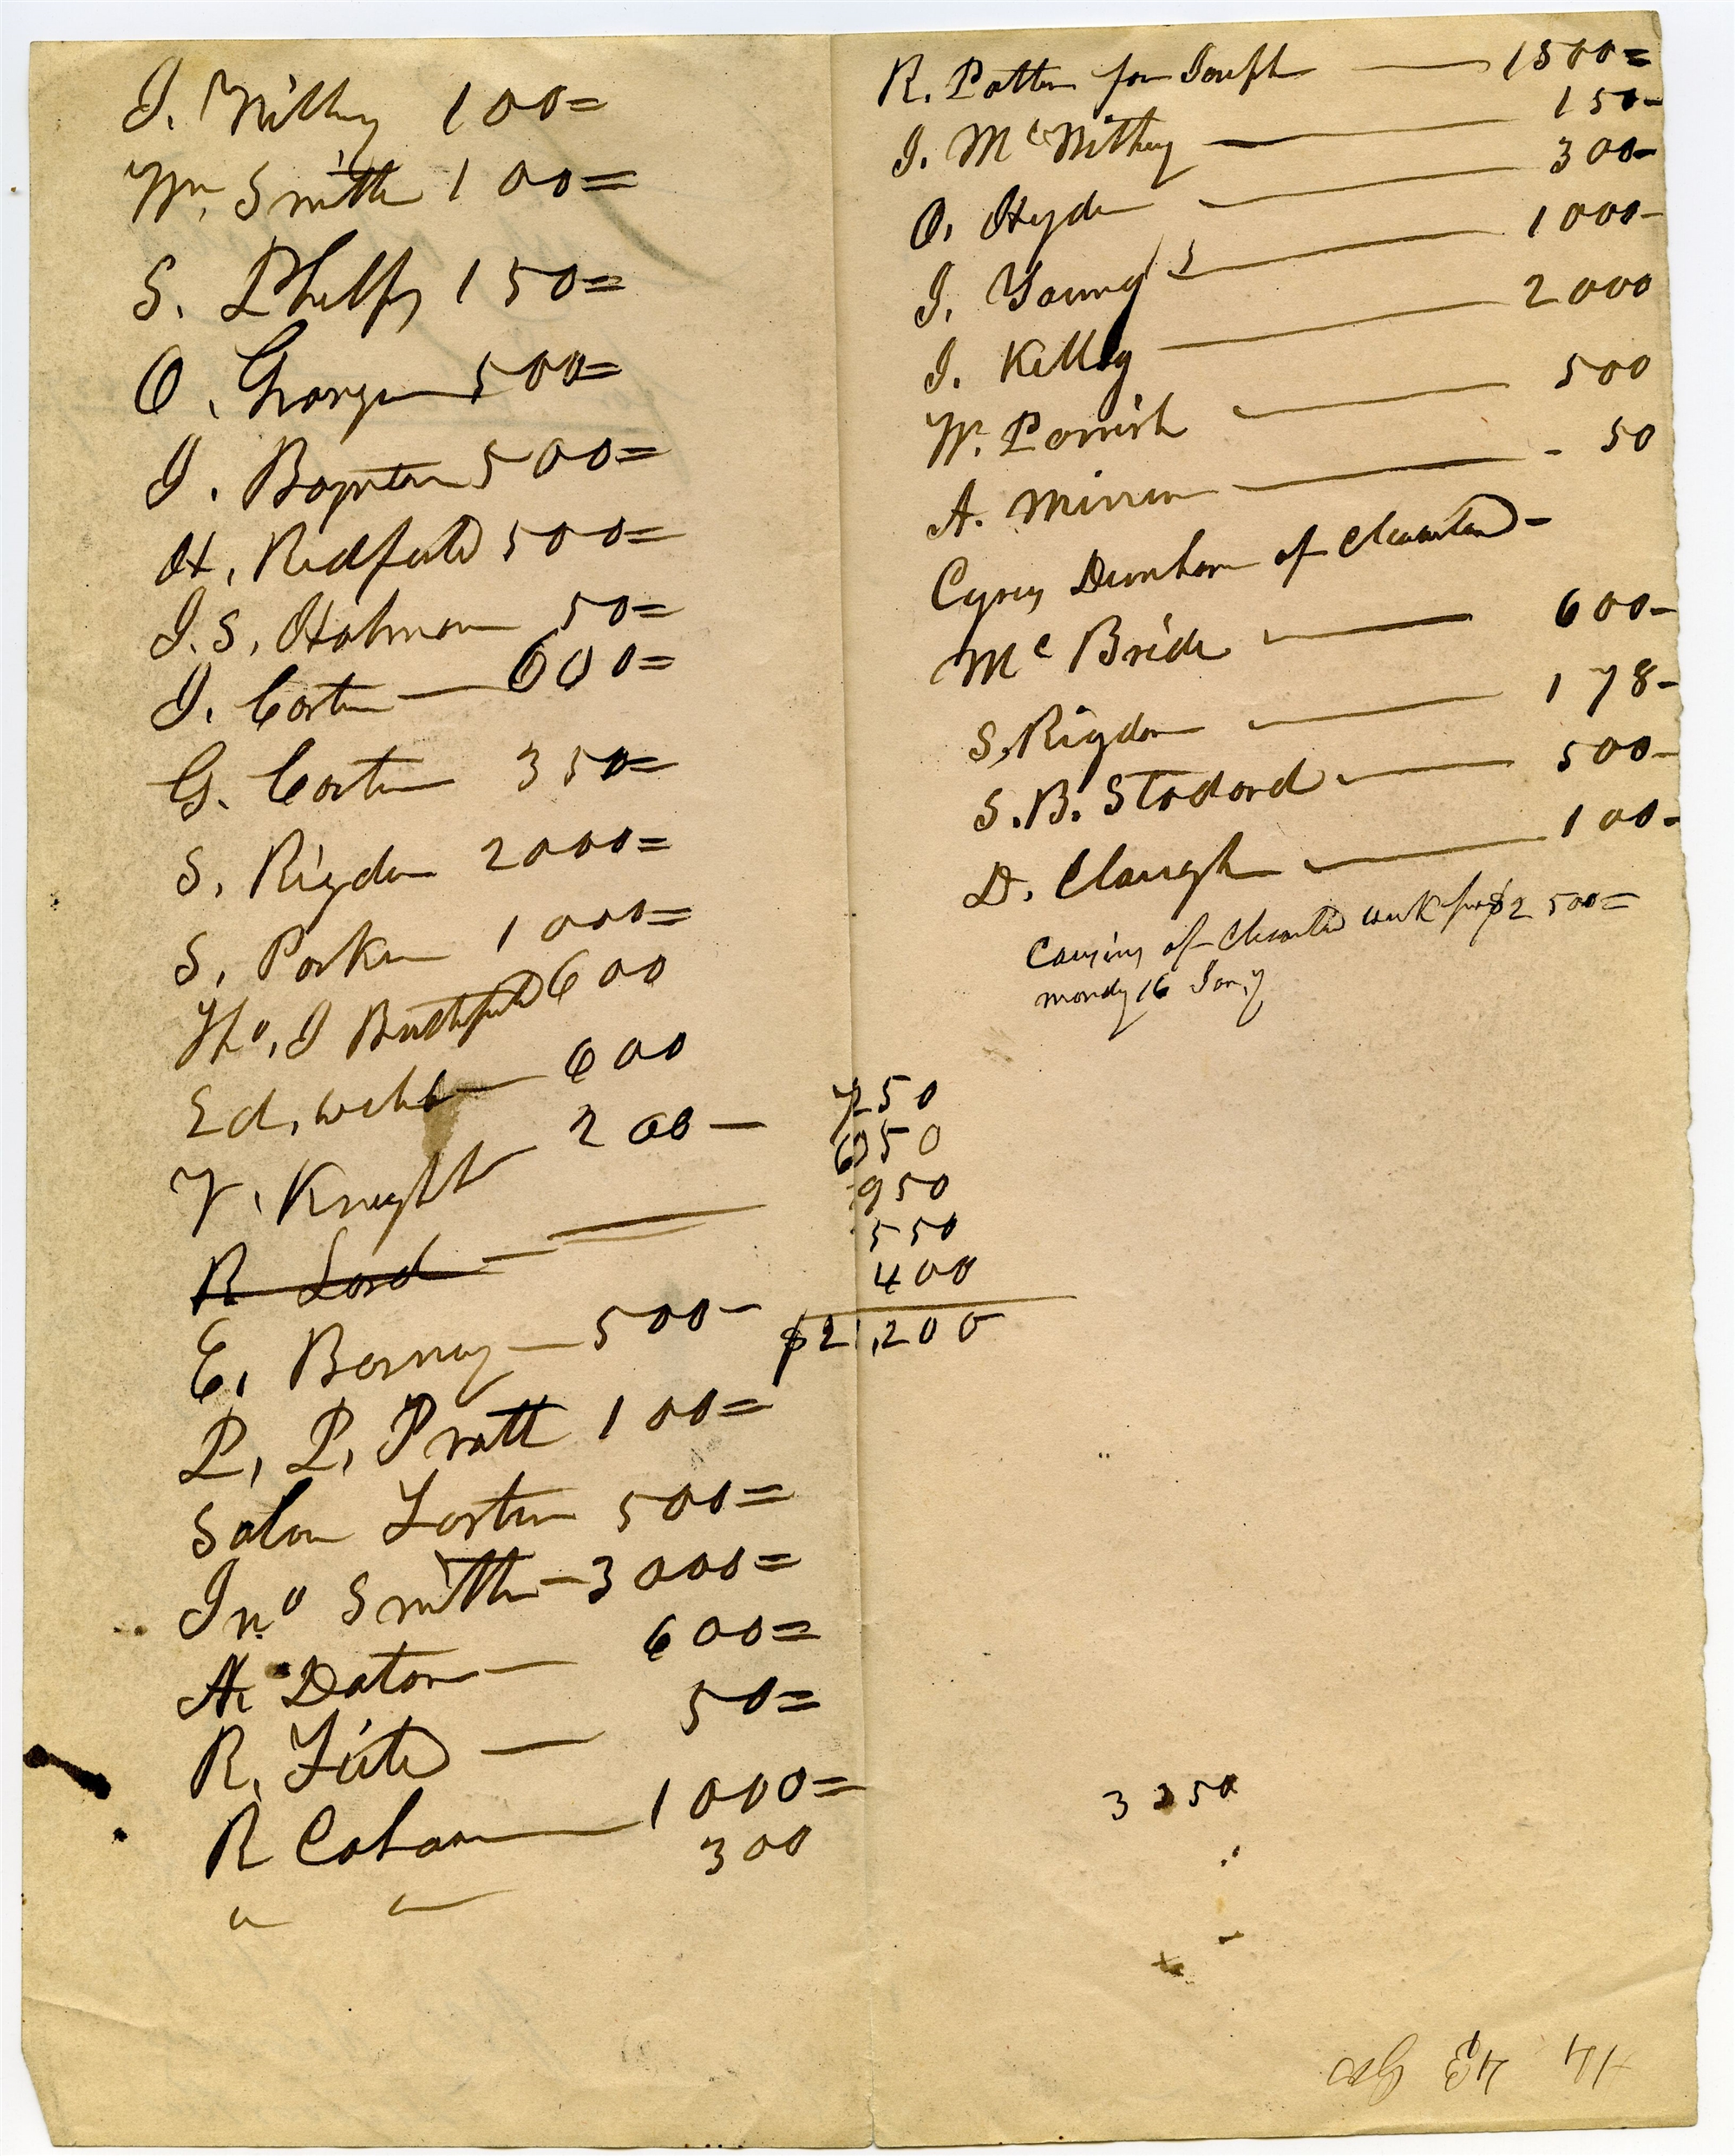 J. Withey 100=
Wm. Smith 100=
S. Phelps 150=
O. Granger 500=
J. Boynton 500=
H. Redfield 500=
J. S. Holman 50=
J. Carter — 600=
G. Carter 350=
S. Rigdon 2000=
S. Parker 1000=
Tho. J Butterfield 600
Ed. Webb — 600
V. Knight 200 —
R Lord —
E. Barney — 500-
P. P. Pratt 100=
Salon Foster 500=
Jno Smith — 3000=
H. Daton — 600=
R. Field — 50=
R Cahoon — 1000=
" " 300
7250
6050
950
550
400
$21,200
R. Potter for Joseph — 1500=
J. McWithey — 150-
O. Hyde — 300-
J. Youngs — 1000-
J. Kellog — 2000
W. Parrish — 500
A. Mirriam — 50
Cyrus Dunham of Cleaveland -
McBride — 600-
S. Rigdon — 178-
S. B. Stodard — 500-
D. Clough — 100-
of Cleaveland for $2500=
monday 16 Jany
3350